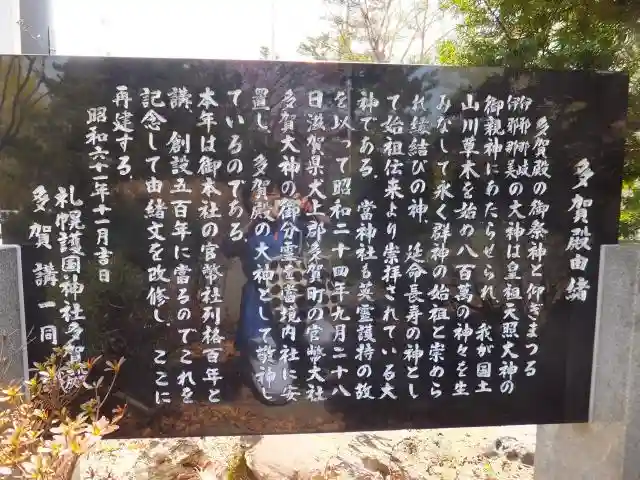 多賀殿由緒
多賀殿の御祭神と仰ぎまつる
伊邪那岐
伊邪那美の大神は皇祖天照大神の
御親神にわたらせられ、我が国土
山川草木を始め八百萬の神々を生
みなして永く群神の始祖と崇めら
れ縁結びの神、延命長寿の神とし
て始祖伝来より崇拝されている大
神である。當神社も英霊護持の故
を以って昭和二十四年九月二十八
日滋賀県犬上郡多賀町の官幣大社
多賀大神の御分霊を當境内社に安
置し、多賀殿の大神として敬神し
ているのである。
本年は御本社の官幣社列格百年と
講、創設五百年に當るのでこれを
記念して由緒文を改修し、ここに
再建する。
昭和六十一年十一月吉日
札幌護国神社多賀殿
多賀講一同